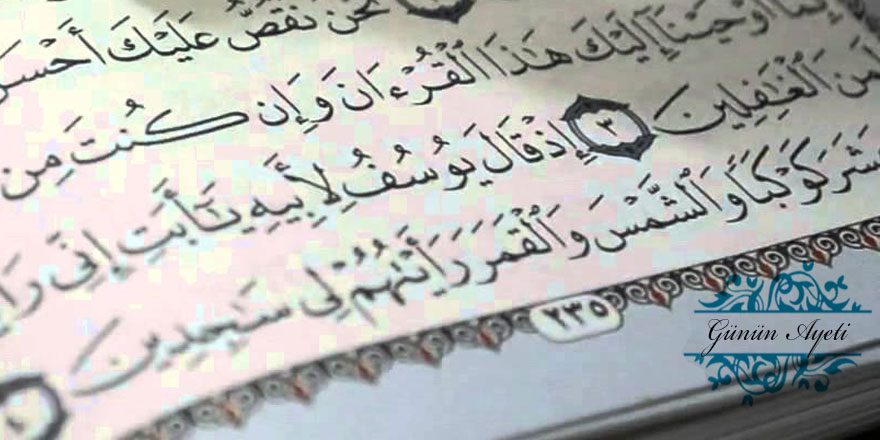 نَحْنُ نَقُصُّ عَلَيْكَ أَحْسَنَ
أَوْحَيْنَآ إِلَيْكَ هَٰذَا ٱلْقُرْءَانَ وَإِن كُنتَ مِن
لَمِنَ ٱلْغَٰفِلِينَ ٣ إِذْ قَالَ يُوسُفُ لِأَبِيهِ يَٰٓأَبَتِ إِنِّى
عَشَرَ كَوْكَبًا وَٱلشَّمْسَ وَٱلْقَمَرَ رَأَيْتُهُمْ لِى سَٰجِدِينَ ٤
٢٣٥
Günün Ayeti